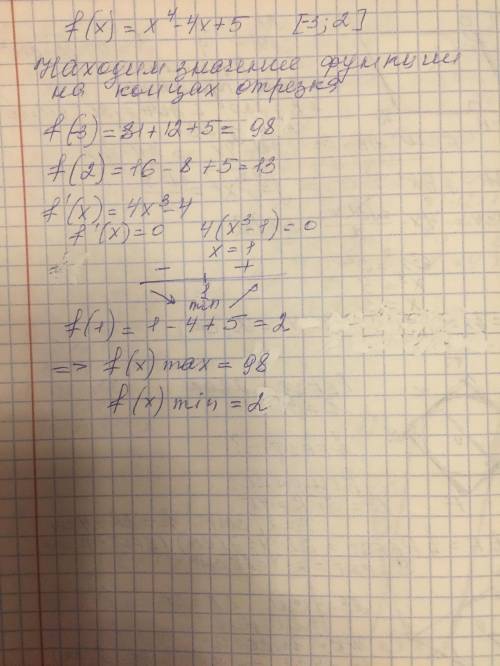 f(x) = x⁴-4x+5 [-3; 2]
Находим значение функции
на концах отрезка
f(-3) = 81+12+5 = 98
f(2) = 16-8+5 = 13
f'(x) = 4x³-4
f'(x) = 0 4(x³-1) = 0
x = 1
- +
1
min
f(1) = 1-4+5 = 2
=> f(x) max = 98
f(x) min = 2